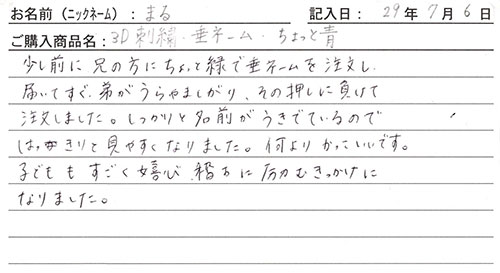 お名前（ニックネーム）：まる 記入日：29年7月6日
ご購入商品名：3D刺繍・垂ネーム・ちょっと青
少し前に兄の方にちょっと緑で垂ネームを注文し、
届いてすぐ、弟がうらやましがり、その押しに負けて
注文しました。しっかりと名前がうきでているので
はっきりと見やすくなりました。何よりかっこいいです。
子どももすごく嬉び、稽古に励むきっかけに
なりました。